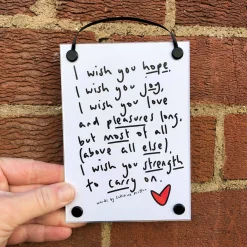 I wish you hope.
I wish you joy,
I wish you love
and pleasures long,
but most of all
(above all else),
I wish you strength
to carry on.
words by